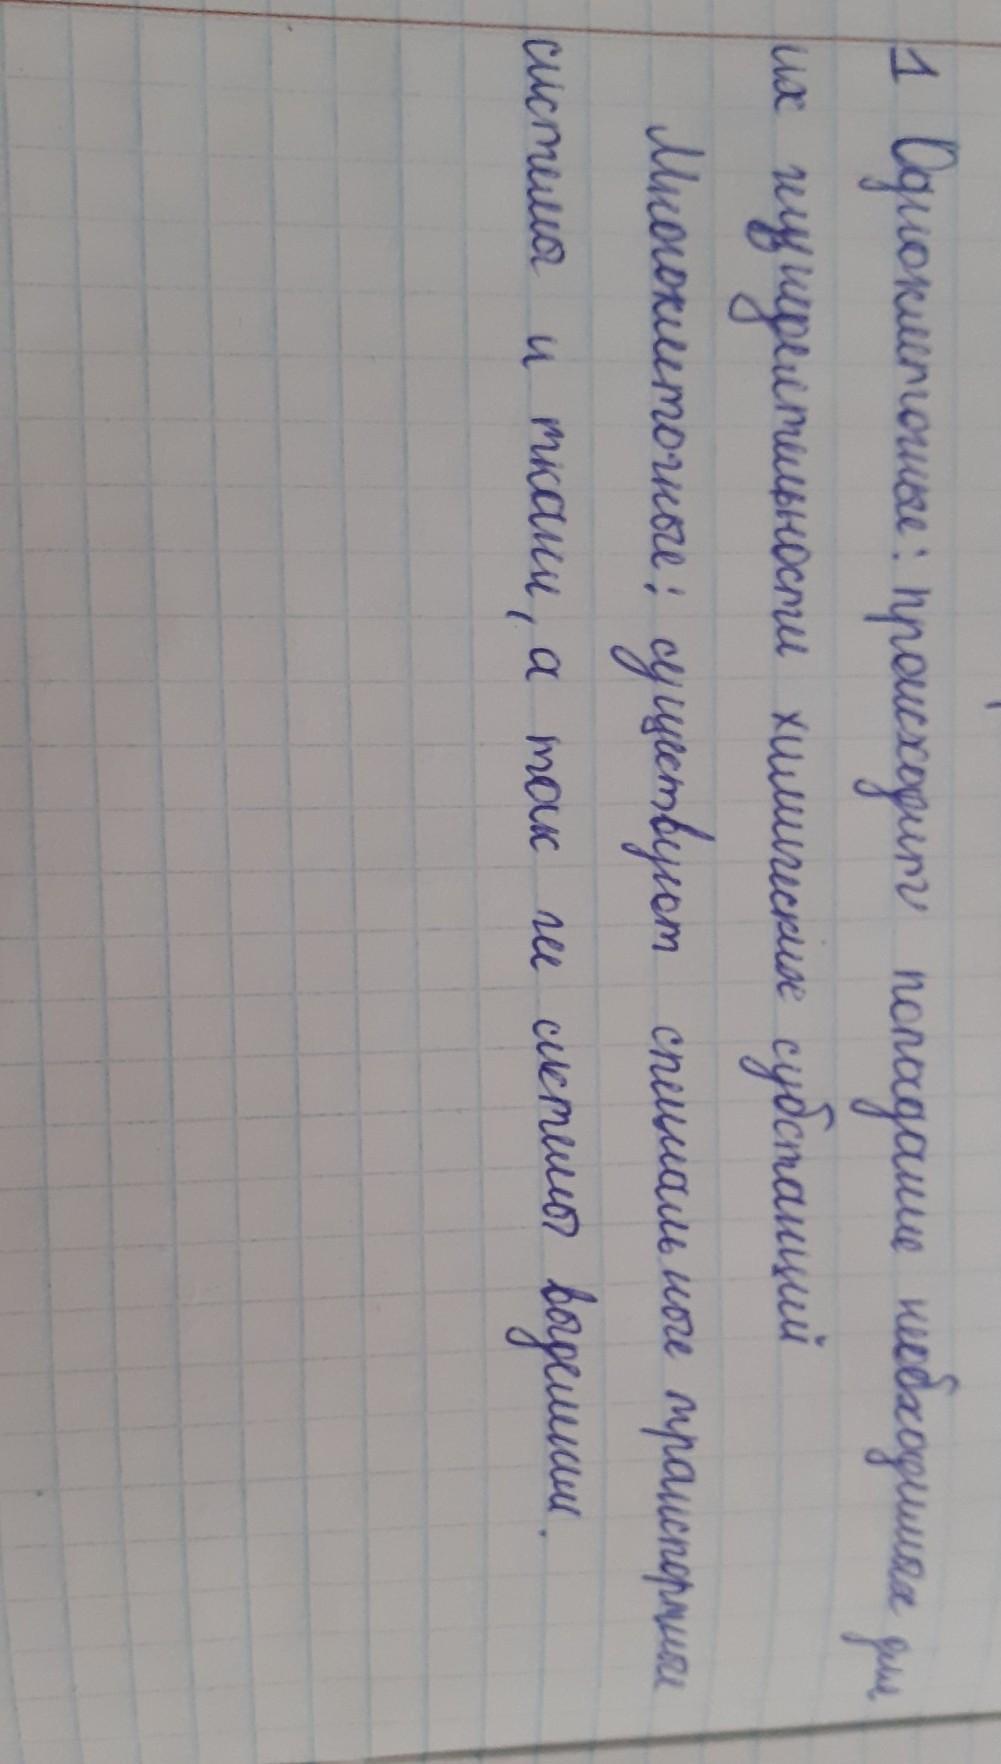 1 Одноклеточные: происходит попадание необходимых для
их жизнедеятельности химических субстанций
Многоклеточные: существуют специальные транспортная
система и ткани, а так же системы выделения.